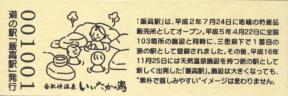 001001
道の駅「飯高駅」発行
香肌峡温泉 いいたかの湯
「飯高駅」は、平成2年7月24日に地域の特産品
販売所としてオープン。平成5年4月22日に全国
103箇所の施設と同時に、三重県下で1番目の
道の駅として登録されました。その後、平成16年
11月25日には天然温泉施設を持つ道の駅として
新しく出発した「飯高駅」。施設は大きくなっても、
“素朴で親しみやすい”イメージは変わりません。